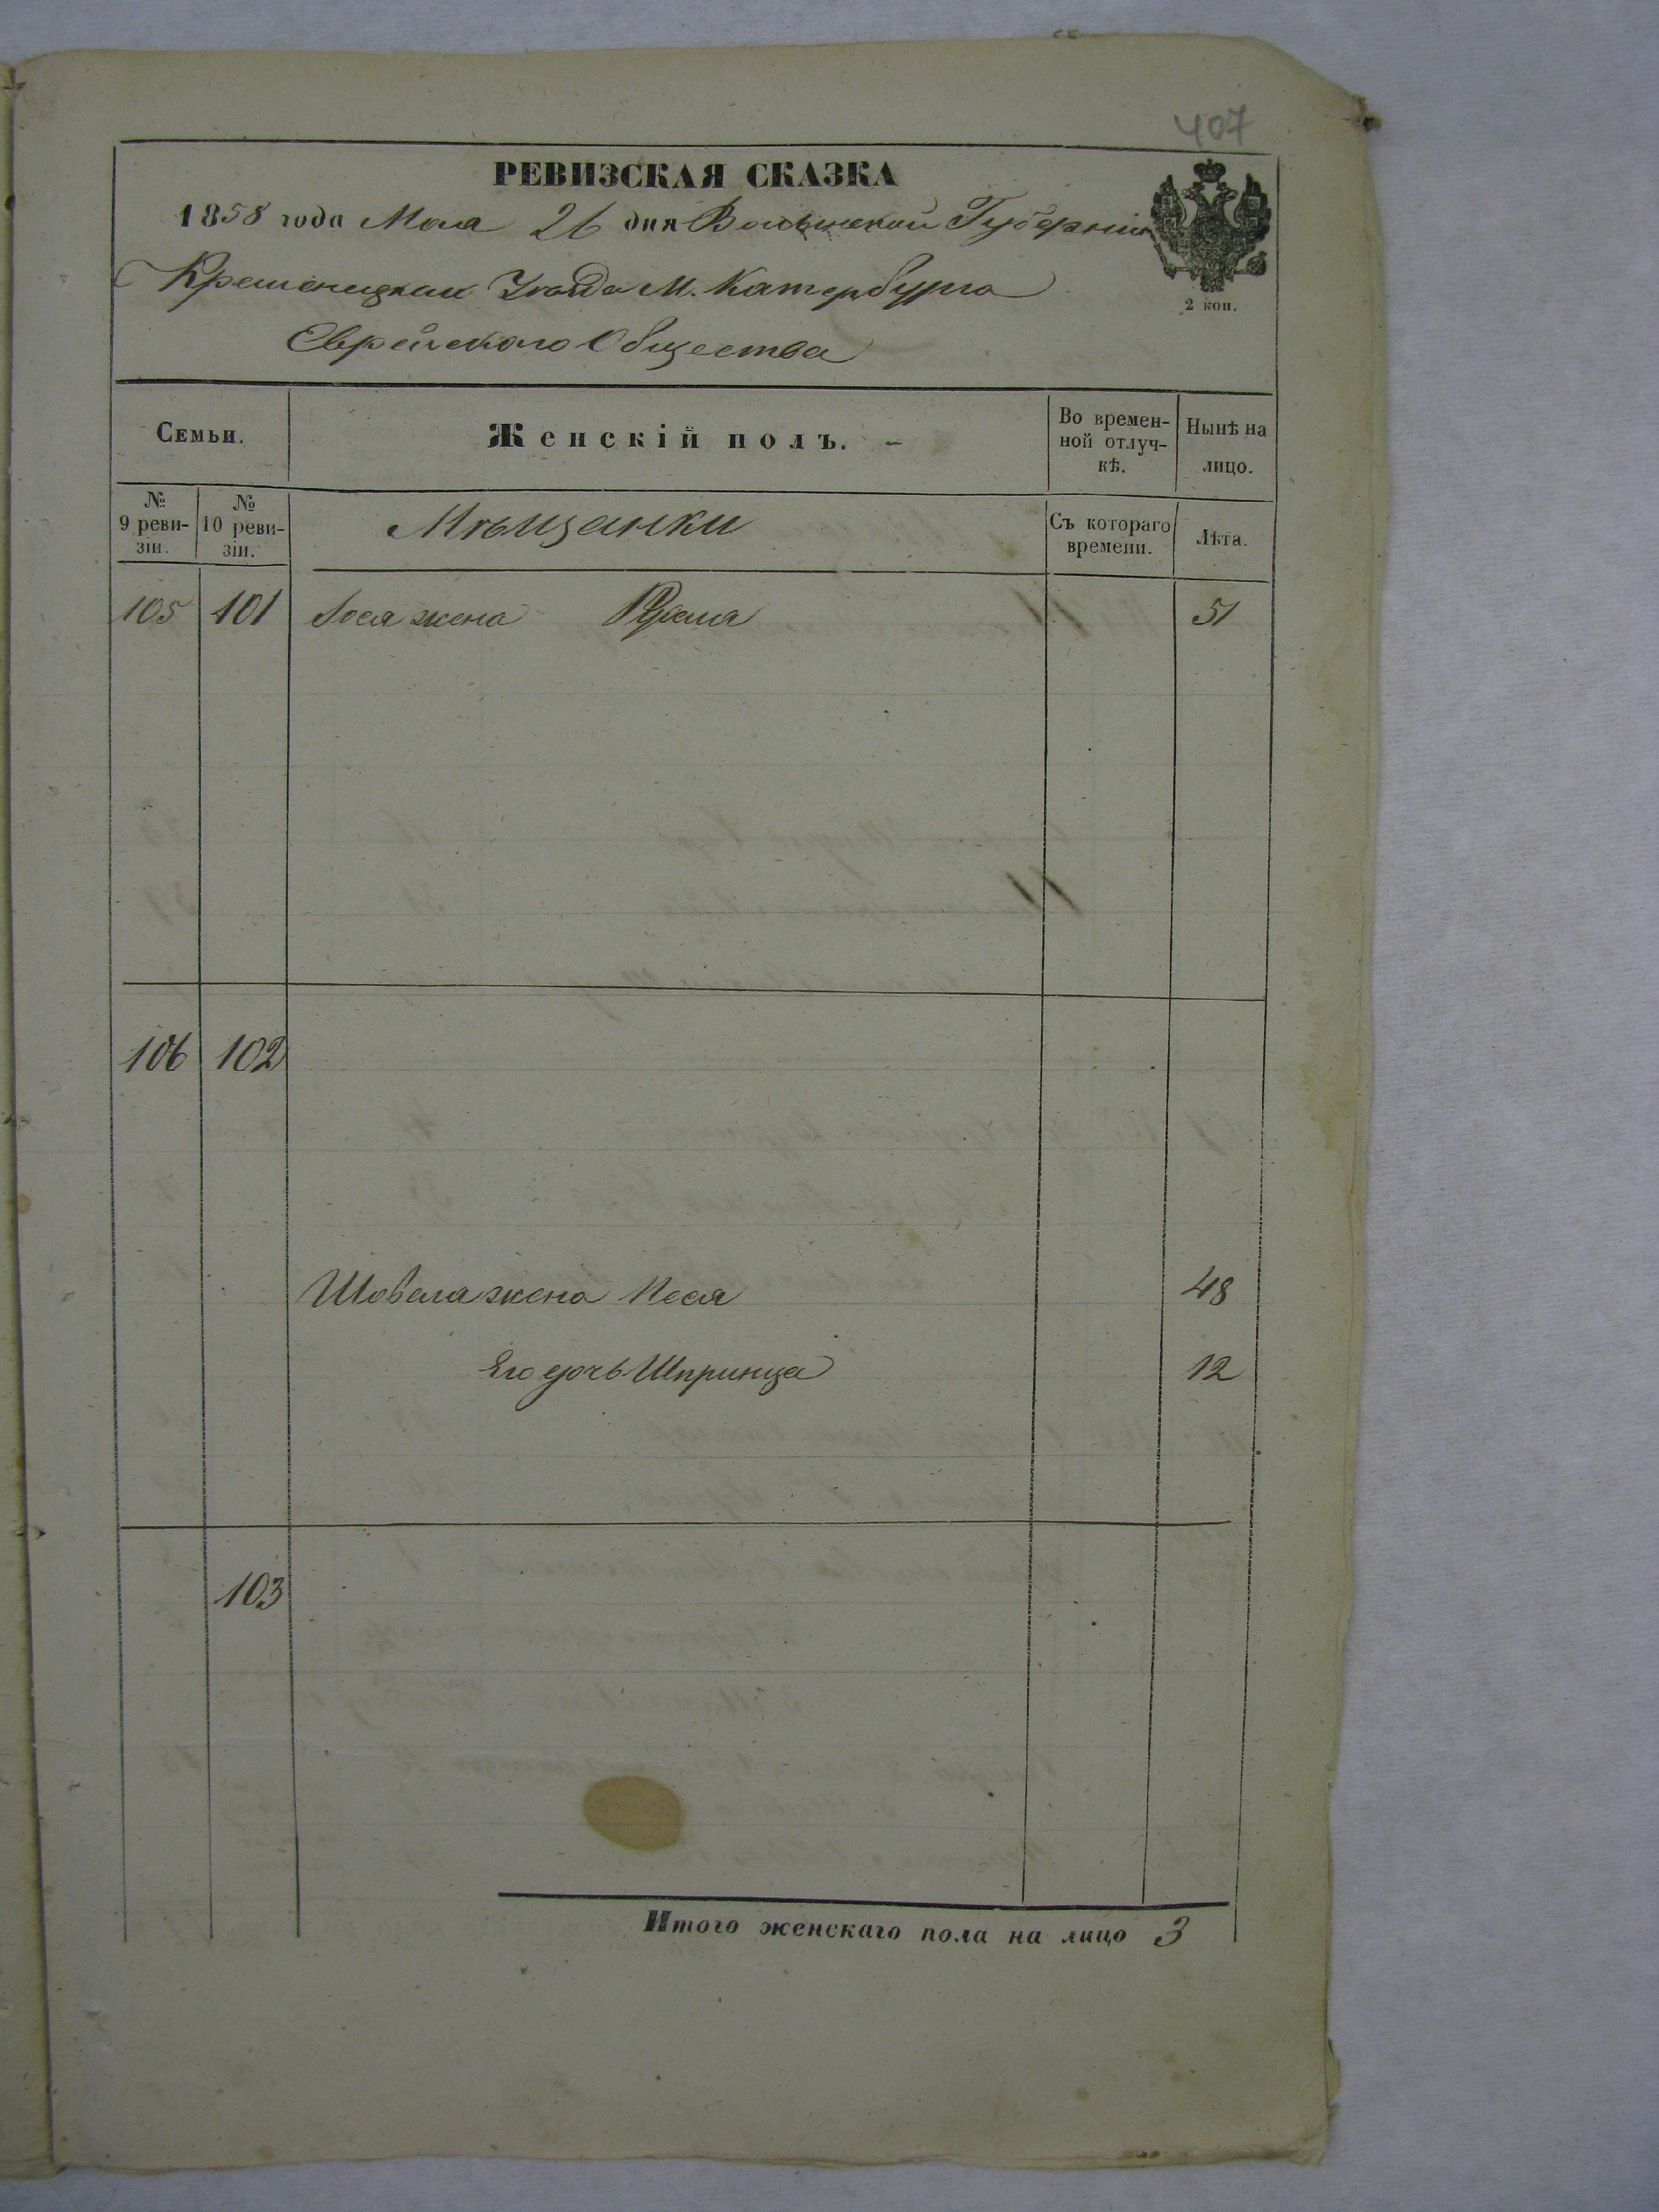 407
РЕВИЗСКАЯ СКАЗКА
1858 года Мая 26 дня Волынской Губерніи
Кременецкаго Уѣзда М. Катербурга
Еврейскаго Общества
2 коп.
Семьи. Женскій полъ. Во времен-ной отлуч-кѣ. Нынѣ на лицо.
№ 9 реви-зіи. № 10 реви-зіи. Мѣщанки Съ котораго времени. Лѣта.
105 101 Іося жена 51
106 102
Шовела жена Песя 48
Его дочь Шпринца 12
103
Итого женскаго пола на лицо 3